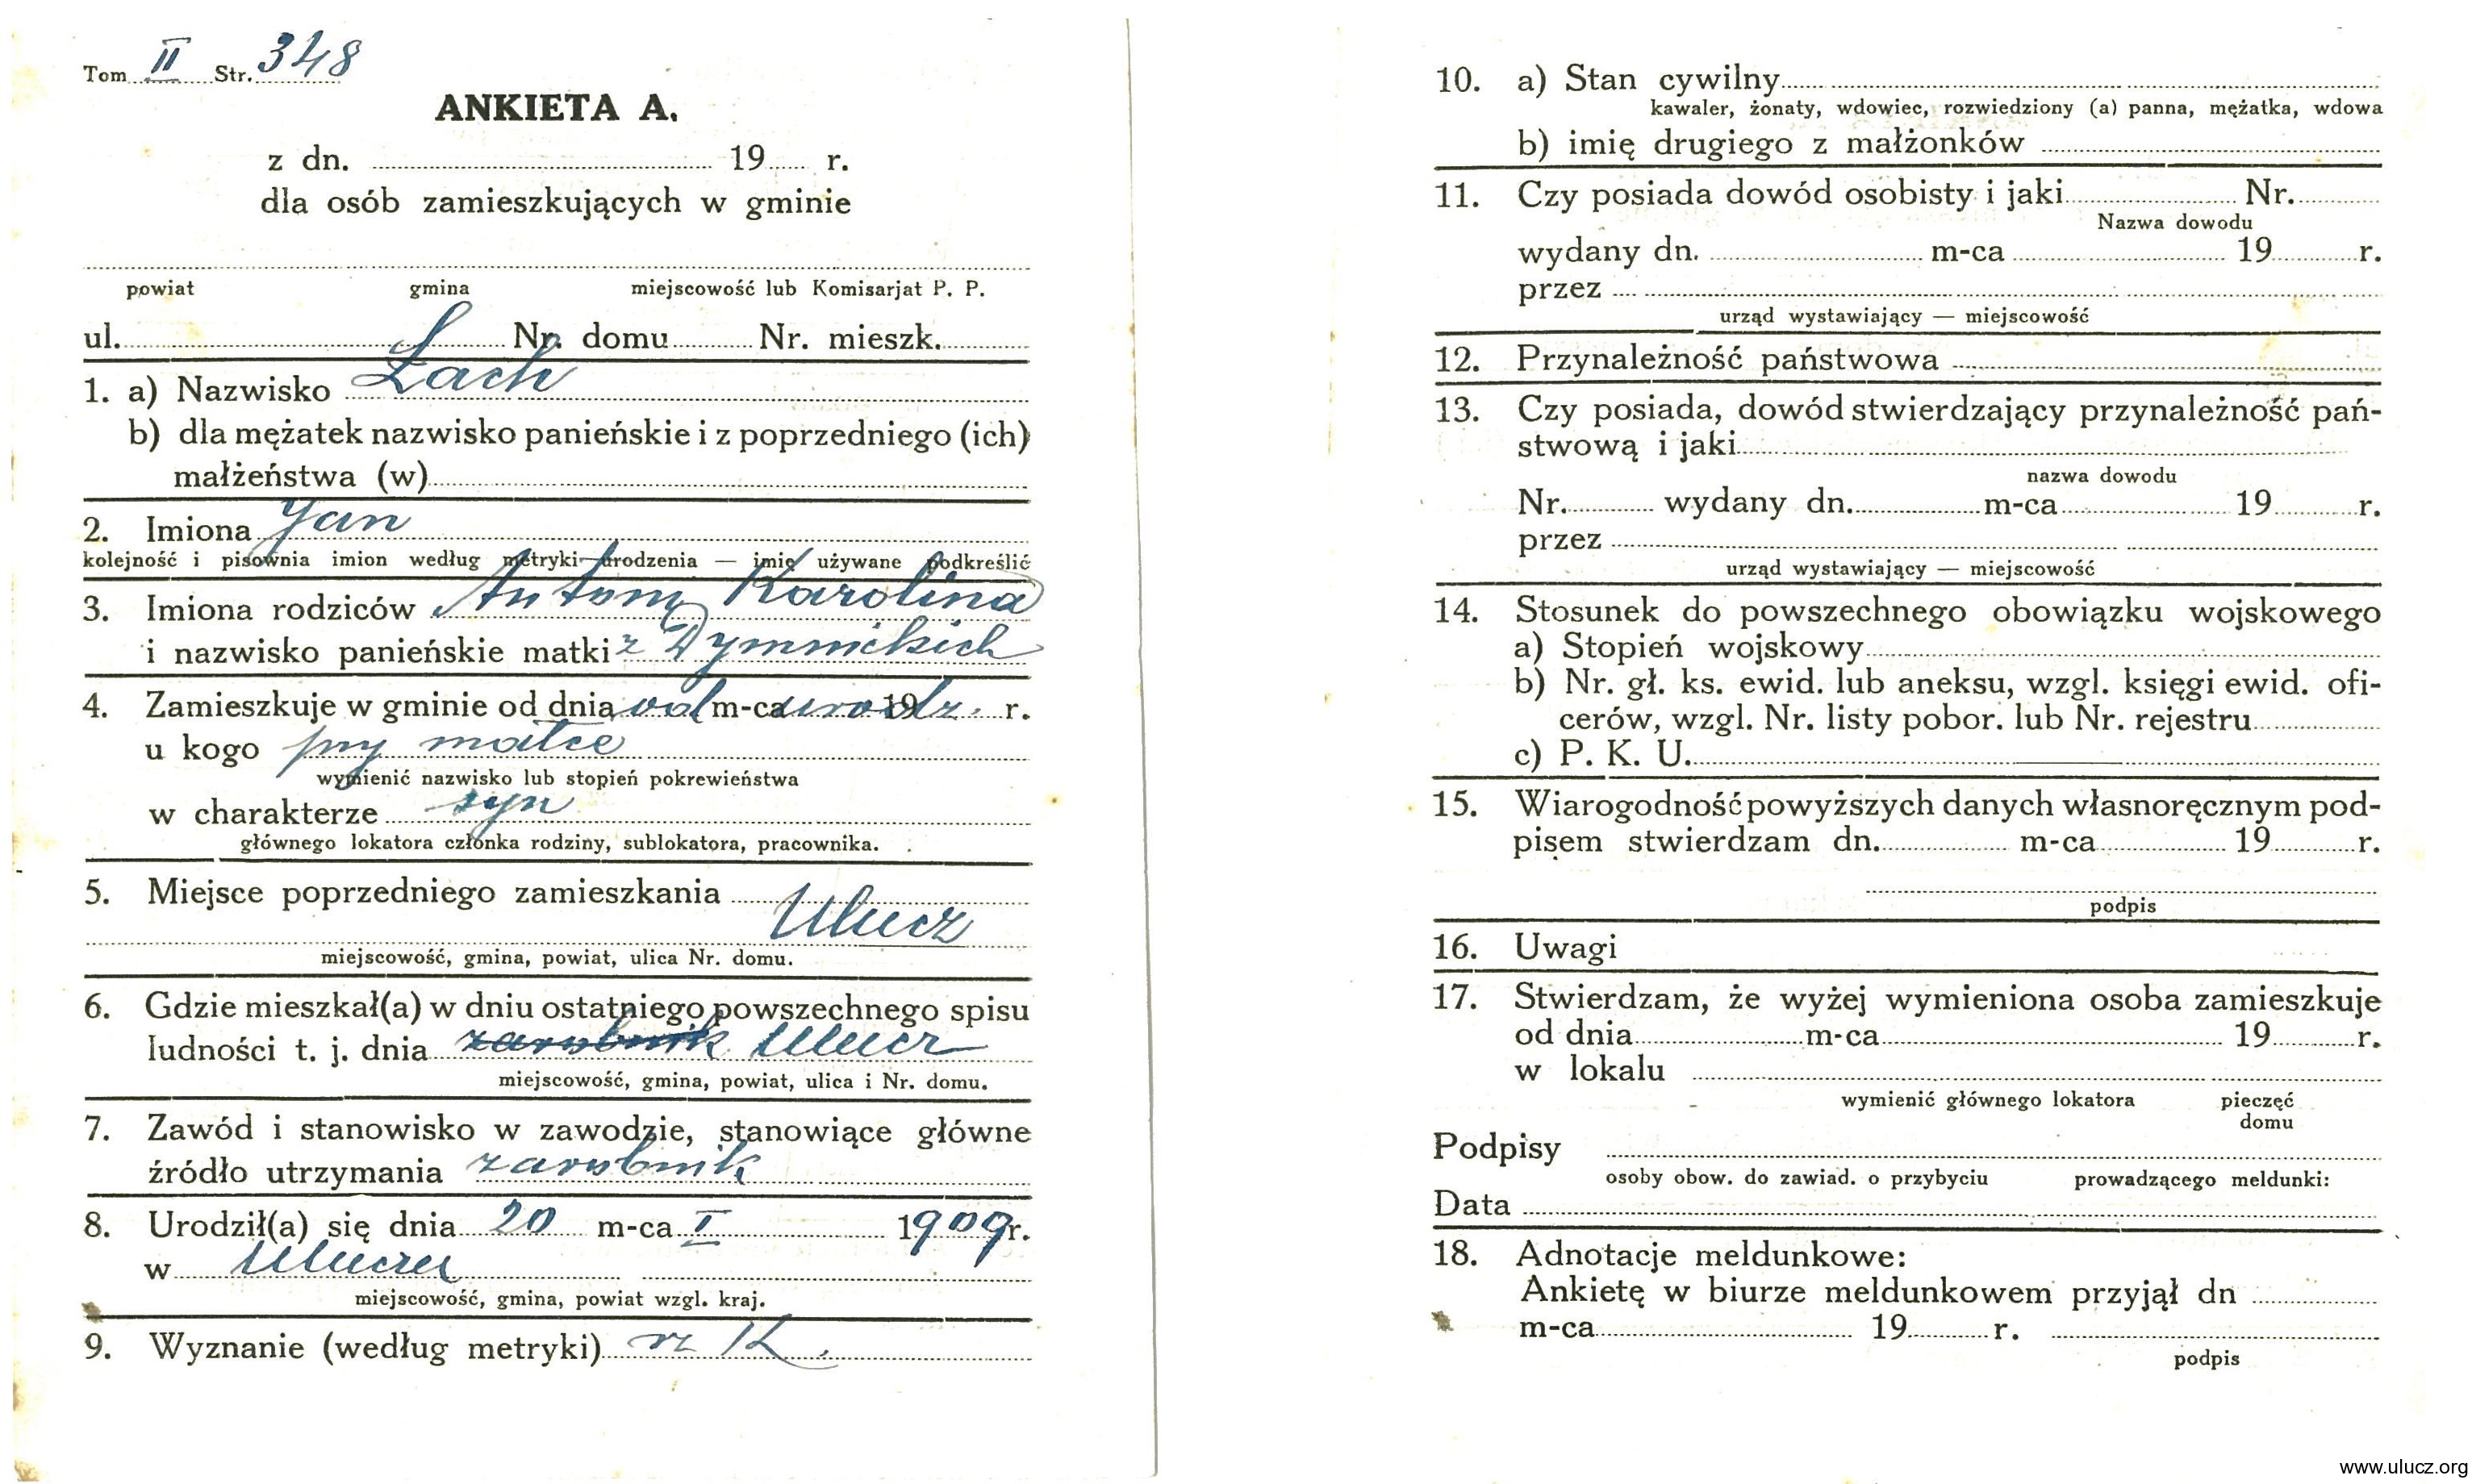 Tom II Str. 348
ANKIETA A.
z dn. 19 r.
dla osób zamieszkujących w gminie
powiat gmina miejscowość lub Komisarjat P. P.
ul. Nr. domu Nr. mieszk.
1. a) Nazwisko Łach
b) dla mężatek nazwisko panieńskie i z poprzedniego (ich)
małżeństwa (w)
2. Imiona Jan
kolejność i pisownia imion według metryki urodzenia — imię używane podkreślić
3. Imiona rodziców Antoni Karolina
i nazwisko panieńskie matki z Dymnickich
4. Zamieszkuje w gminie od dnia od m-ca urodz. 19 r.
u kogo przy matce
wymienić nazwisko lub stopień pokrewieństwa
w charakterze syn
głównego lokatora członka rodziny, sublokatora, pracownika.
5. Miejsce poprzedniego zamieszkania
Ulucz
miejscowość, gmina, powiat, ulica Nr. domu.
6. Gdzie mieszkał(a) w dniu ostatniego powszechnego spisu
ludności t. j. dnia zarobnik Ulucz
miejscowość, gmina, powiat, ulica i Nr. domu.
7. Zawód i stanowisko w zawodzie, stanowiące główne
źródło utrzymania zarobnik
8. Urodził(a) się dnia 20 m-ca I 1909 r.
w Uluczu
miejscowość, gmina, powiat wzgl. kraj.
9. Wyznanie (według metryki) rz K.
10. a) Stan cywilny
kawaler, żonaty, wdowiec, rozwiedziony (a) panna, mężatka, wdowa
b) imię drugiego z małżonków
11. Czy posiada dowód osobisty i jaki Nr.
Nazwa dowodu
wydany dn. m-ca 19 r.
przez
urząd wystawiający — miejscowość
12. Przynależność państwowa
13. Czy posiada, dowód stwierdzający przynależność pań-
stwową i jaki
nazwa dowodu
Nr. wydany dn. m-ca 19 r.
przez
urząd wystawiający — miejscowość
14. Stosunek do powszechnego obowiązku wojskowego
a) Stopień wojskowy
b) Nr. gł. ks. ewid. lub aneksu, wzgl. księgi ewid. ofi-
cerów, wzgl. Nr. listy pobor. lub Nr. rejestru
c) P. K. U.
15. Wiarogodność powyższych danych własnoręcznym pod-
pisem stwierdzam dn. m-ca 19 r.
podpis
16. Uwagi
17. Stwierdzam, że wyżej wymieniona osoba zamieszkuje
od dnia m-ca 19 r.
w lokalu
wymienić głównego lokatora pieczęć
domu
Podpisy
osoby obow. do zawiad. o przybyciu prowadzącego meldunki:
Data
18. Adnotacje meldunkowe:
Ankietę w biurze meldunkowem przyjął dn
m-ca 19 r.
podpis
www.ulucz.org